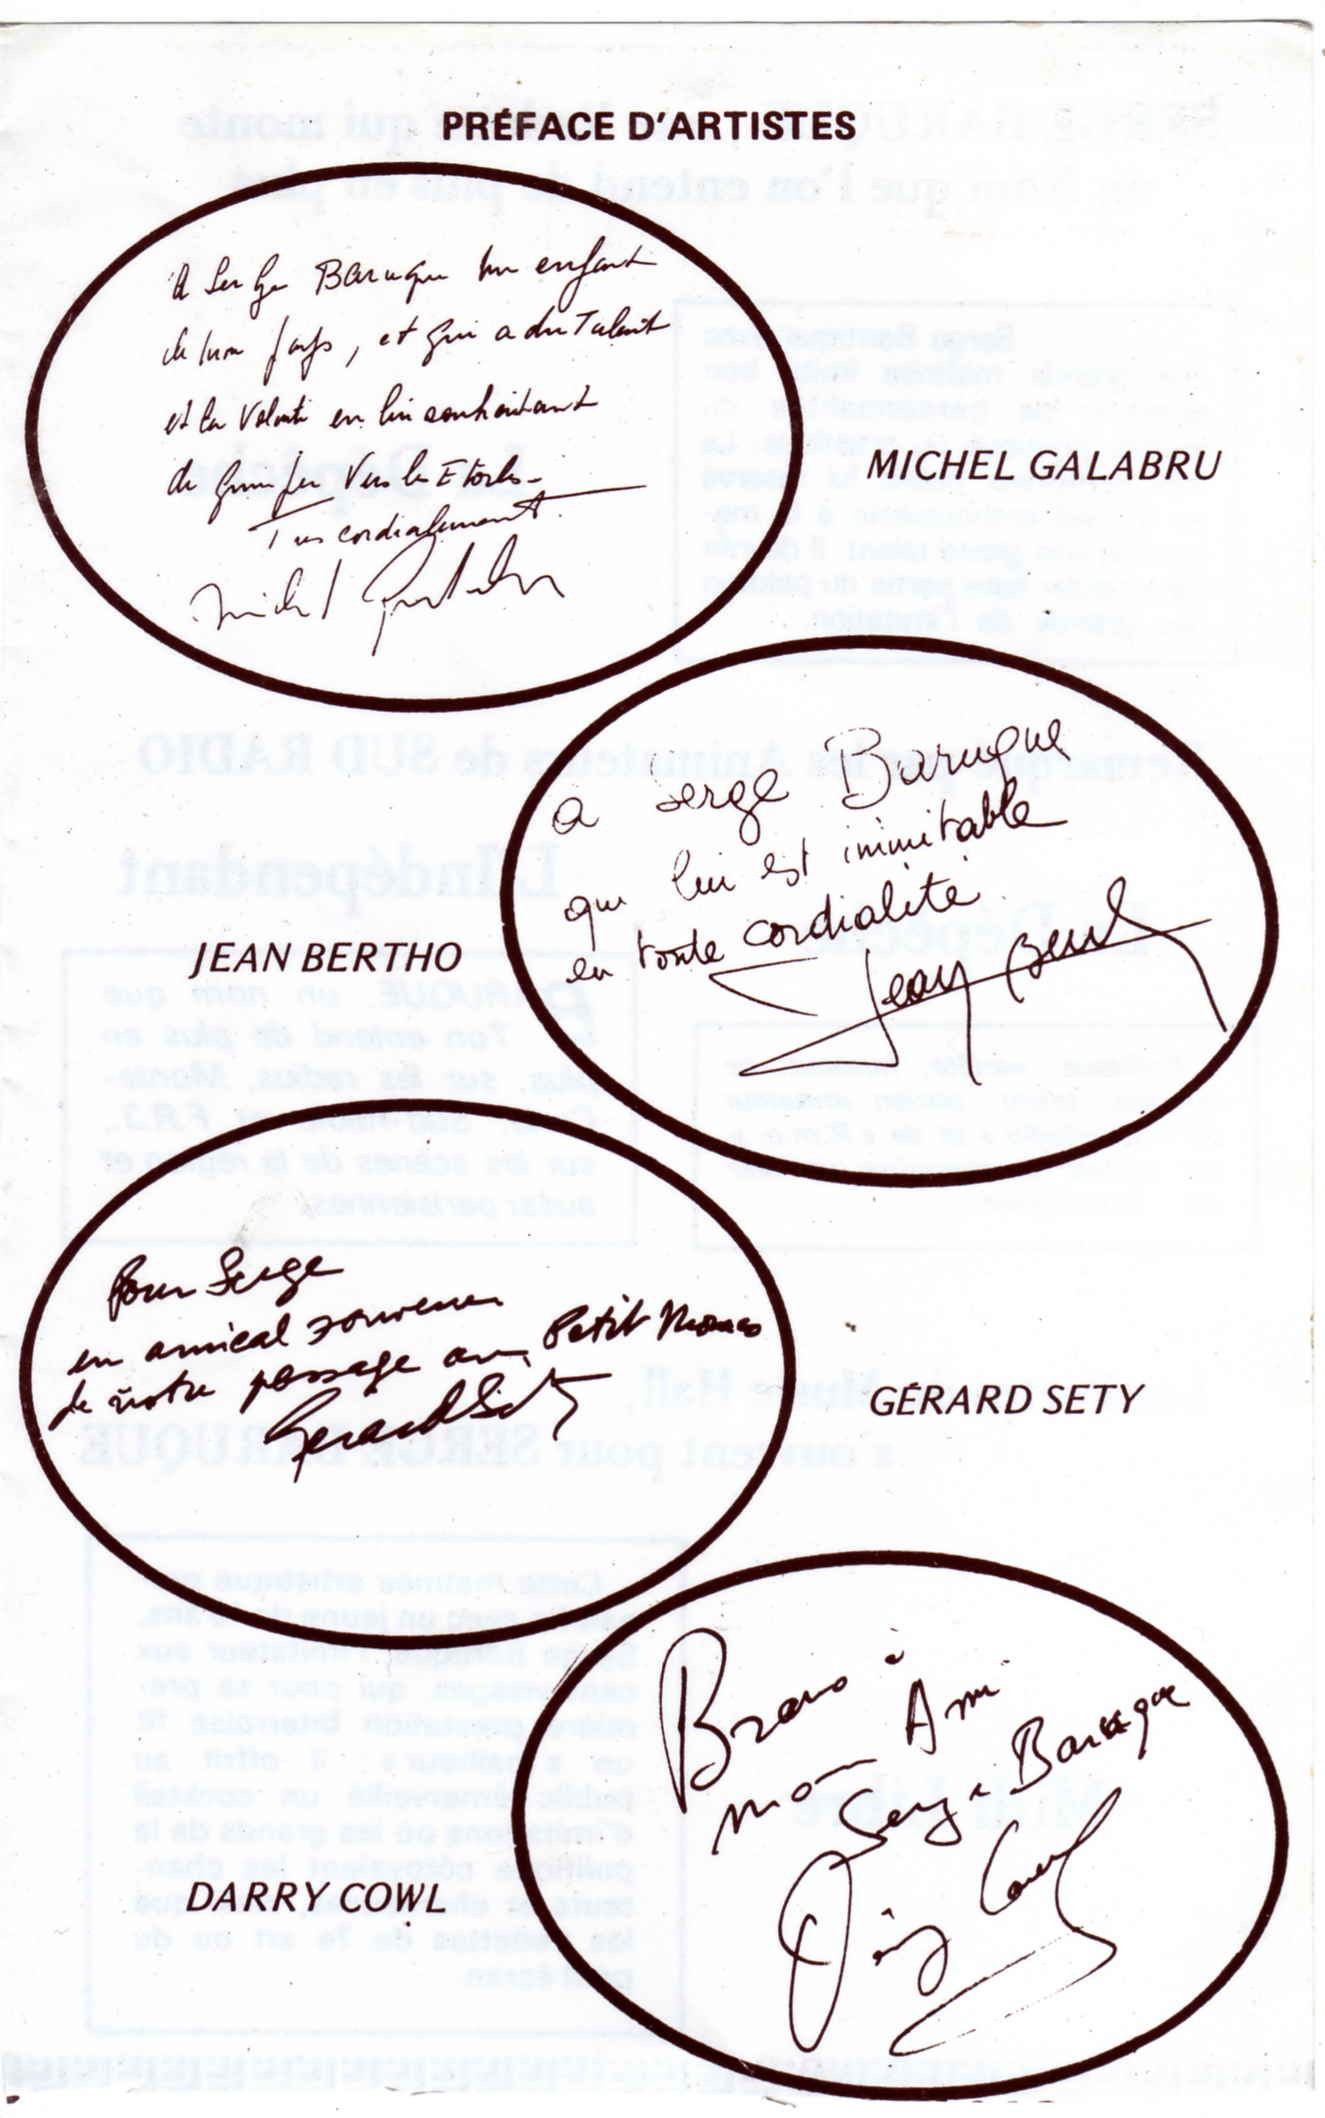 PRÉFACE D'ARTISTES
A Serge Baruque un enfant
de mon pays, et qui a du Talent
et la Volonté en lui souhaitant
de grimper Vers les Etoiles
Très cordialement
Michel Galabru
MICHEL GALABRU
a serge Baruque
qui lui est inimitable
en toute cordialité
Jean Bertho
JEAN BERTHO
Pour Serge
en amical souvenir
de notre passage au Petit Monaco
Gerard Sety
GÉRARD SETY
Bravo à
mon Ami
Serge Baruque
Darry Cowl
DARRY COWL